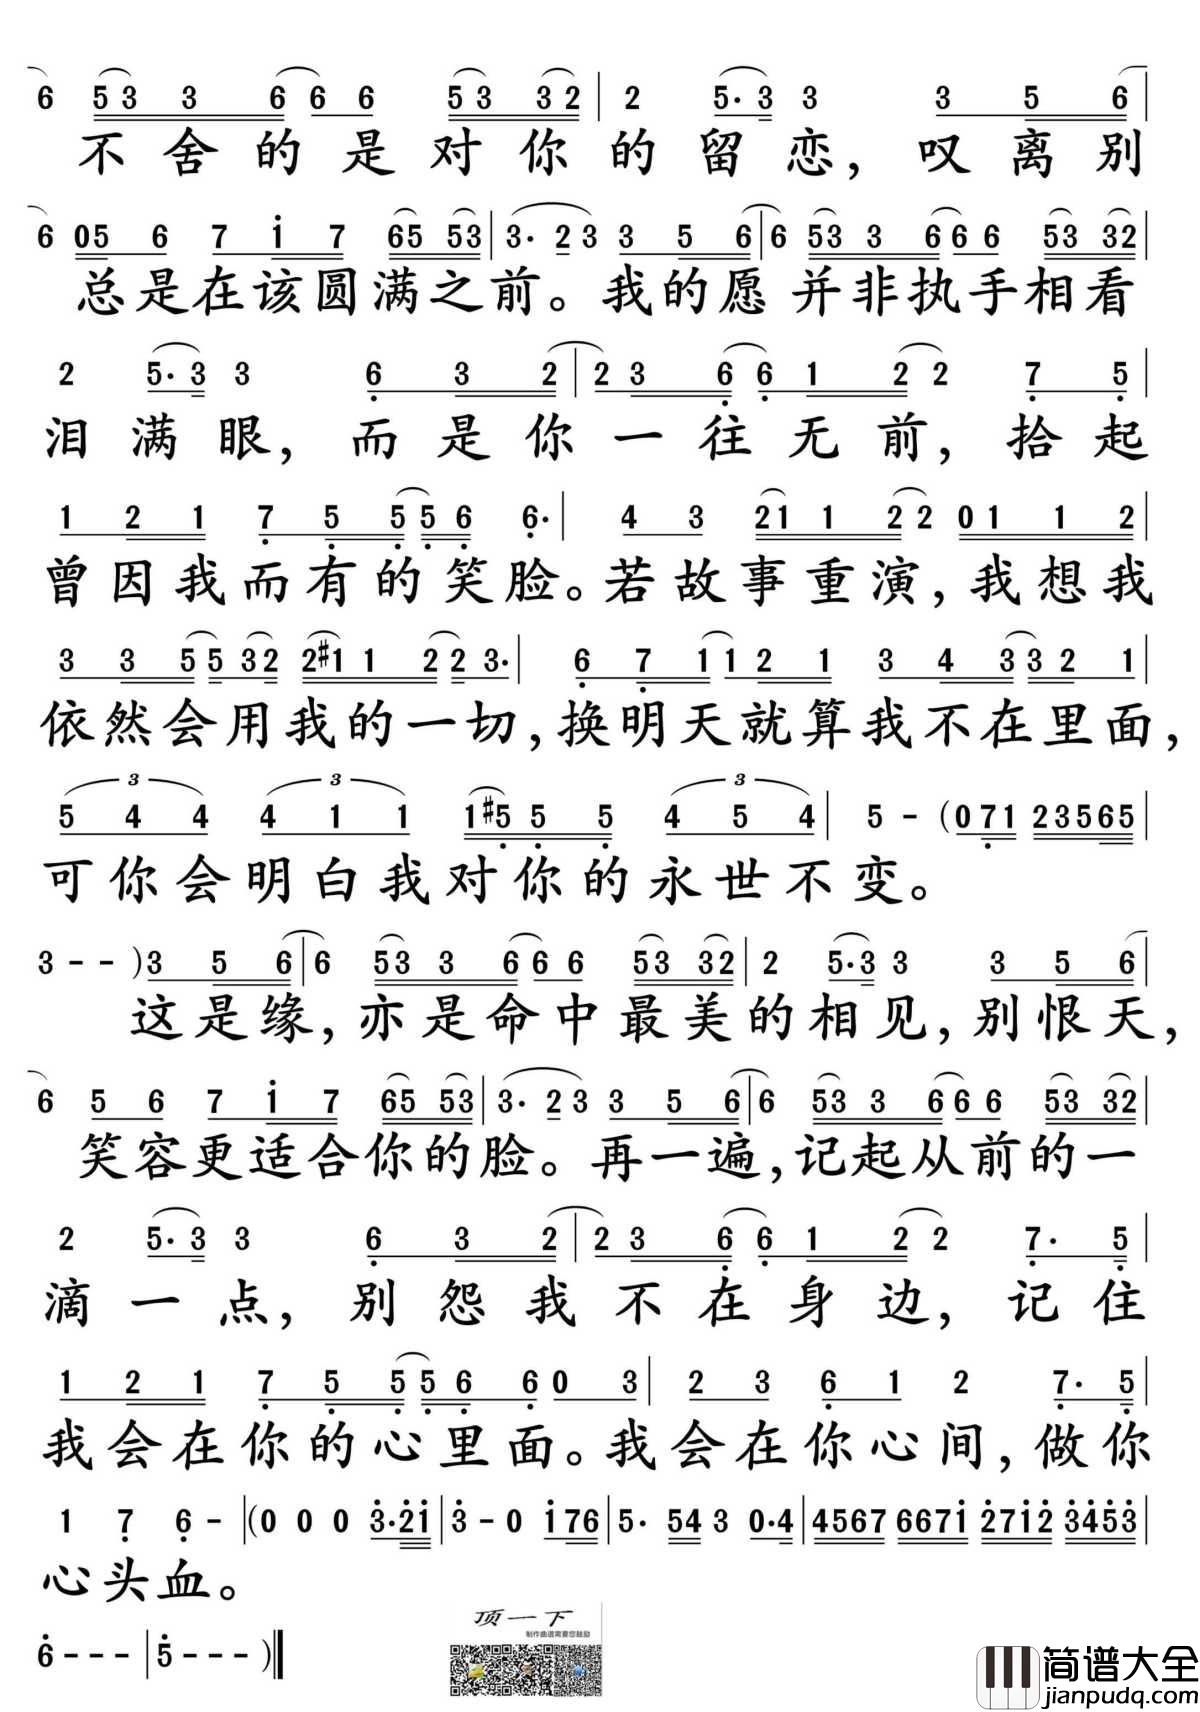 6 53 3 6 6 6 53 32 | 2 5·3 3 3 5 6 |
不舍的是对你的留恋，叹离别
6 05 6 7 1 7 65 53 | 3· 2 3 3 5 6 | 6 53 3 6 6 6 53 32 |
总是在该圆满之前。我的愿并非执手相看
2 5·3 3 6 3 2 | 2 3 6 6 1 2 2 7 5 |
泪满眼，而是你一往无前，拾起
1 2 1 7 5 5 5 6 6· | 4 3 21 1 2 2 01 1 2 |
曾因我而有的笑脸。若故事重演，我想我
3 3 5 5 32 2#1 1 2 2 3· | 6 7 1 1 2 1 3 4 3 3 2 1 |
依然会用我的一切，换明天就算我不在里面，
3 3 3
5 4 4 4 1 1 1#5 5 5 4 5 4 | 5 - (0 71 23565 |
可你会明白我对你的永世不变。
3 - - )3 5 6 | 6 53 3 6 6 6 53 32 | 2 5·3 3 3 5 6 |
这是缘，亦是命中最美的相见，别恨天，
6 5 6 7 1 7 65 53 | 3· 2 3 3 5 6 | 6 53 3 6 6 6 53 32 |
笑容更适合你的脸。再一遍，记起从前的一
2 5·3 3 6 3 2 | 2 3 6 6 1 2 2 7· 5 |
滴一点，别怨我不在身边，记住
1 2 1 7 5 5 5 6 6 0 3 | 2 3 6 1 2 7· 5 |
我会在你的心里面。我会在你心间，做你
1 7 6 - | (0 0 0 3·21 | 3 - 0 176 | 5· 54 3 0·4 | 4567 6671 2712 3453 |
心头血。
6 - - - | 5 - - - )
顶一下
制作曲谱需要您鼓励
简谱大全
jianpudq.com